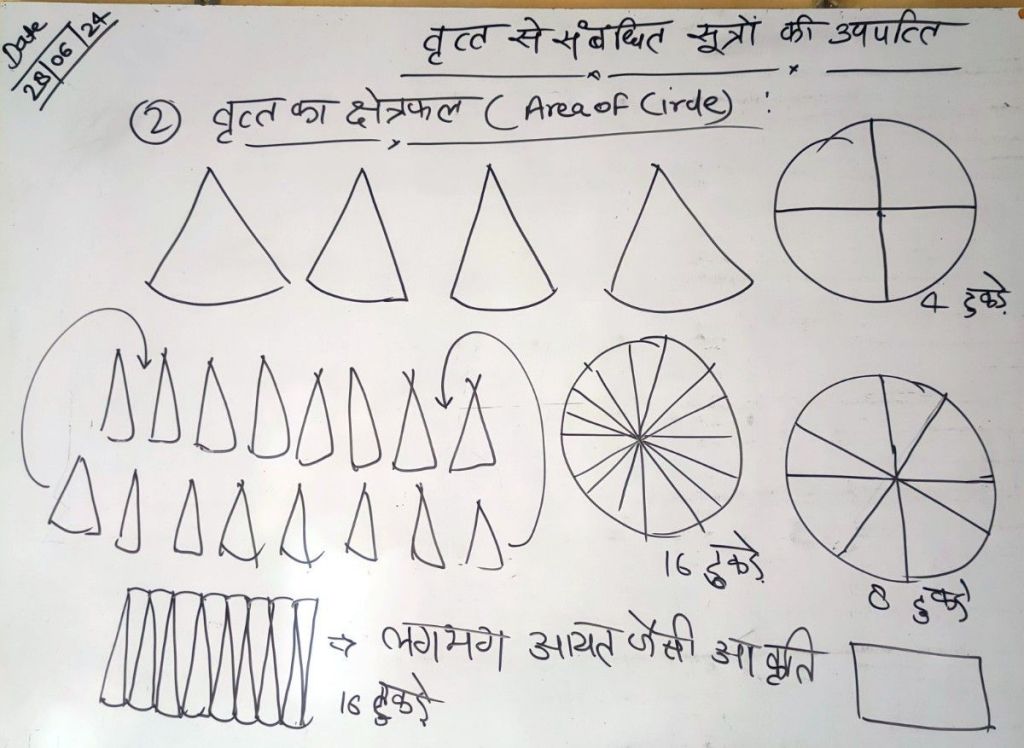 Date
28/06/24
वृत्त से संबंधित सूत्रों की उपपत्ति
② वृत्त का क्षेत्रफल (Area of Circle) :
4 टुकड़े
16 टुकड़े
8 टुकड़े
⇒ लगभग आयत जैसी आकृति
16 टुकड़े